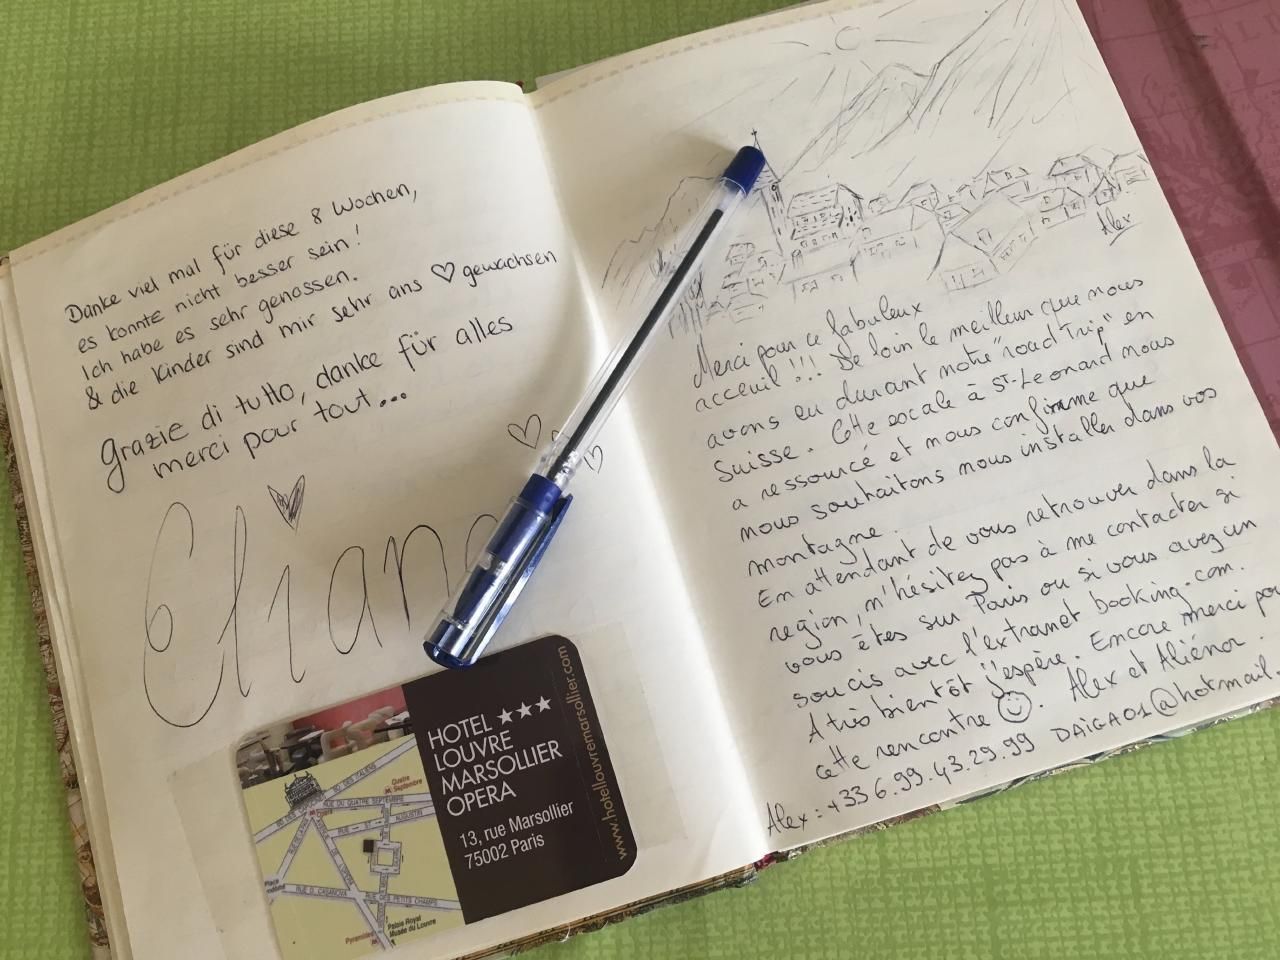 Danke viel mal für diese 8 Wochen,
es konnte nicht besser sein!
Ich habe es sehr genossen.
& die Kinder sind mir sehr ans ♡ gewachsen
Grazie di tutto, danke für alles
merci pour tout...
Elian
HOTEL ★★★
LOUVRE
MARSOLLIER
OPERA
13, rue Marsollier
75002 Paris
www.hotellouvremarsollier.com
Quatre
Septembre
RUE DU QUATRE SEPTEMBRE
RUE ST AUGUSTIN
RUE D. CASANOVA
RUE DES PETITS CHAMPS
Palais Royal
Musée du Louvre
Pyramides
Alex
Merci pour ce fabuleux
acceuil !!! De loin le meilleur que nous
avons eu durant notre "road Trip" en
Suisse. Cette escale à St-Leonard nous
a ressourcé et nous confirme que
nous souhaitons nous installer dans vos
montagne.
En attendant de vous retrouver dans la
region, n'hésitez pas à me contacter si
vous êtes sur Paris ou si vous avez un
soucis avec l'extranet booking.com.
A très bientôt j'espère. Encore merci pour
cette rencontre ☺. Alex et Aliénor.
Alex : +33 6.99.43.29.99 DAIGA01@hotmail.